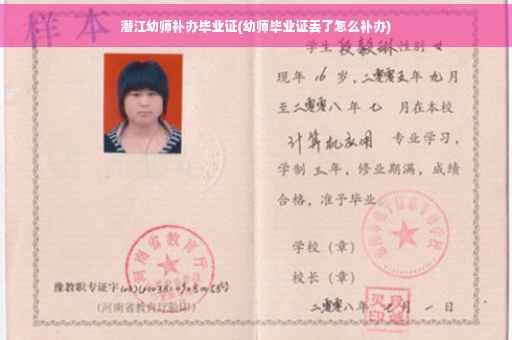 潜江幼师补办毕业证(幼师毕业证丢了怎么补办)
样本
学生 段毅琳 性别 女
现年 16 岁，二零零五年 九月
至二零零八年 七 月在本校
计算机应用 专业学习，
学制 三年，修业期满，成绩
合格，准予毕业
学校（章）
校长（章）
二零零八年 七月 一日
河南省教育厅
豫教职专证字
(河南省教育厅验印)